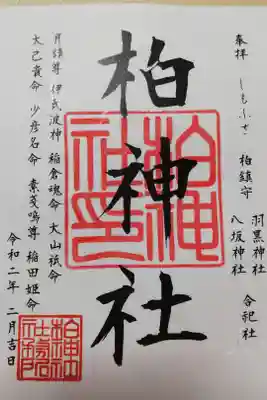 奉拝 しもふさ 柏鎮守
羽黒神社
八坂神社
合祀社
柏神社
柏神社印
月讀尊 伊氐波神 稲倉魂命 大山祇命
大己貴命 少彦名命 素戔嗚尊 稲田姫命
令和二年 二月吉日